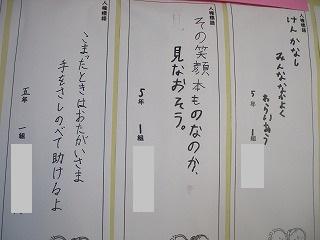 人権標語
けんかなし
みんななかよく
わらいあう
5年 1組
人権標語
その笑顔本ものなのか、
見なおそう。
5年 1組
人権標語
こまったときはおたがいさま
手をさしのべて助けるよ
五年 一組